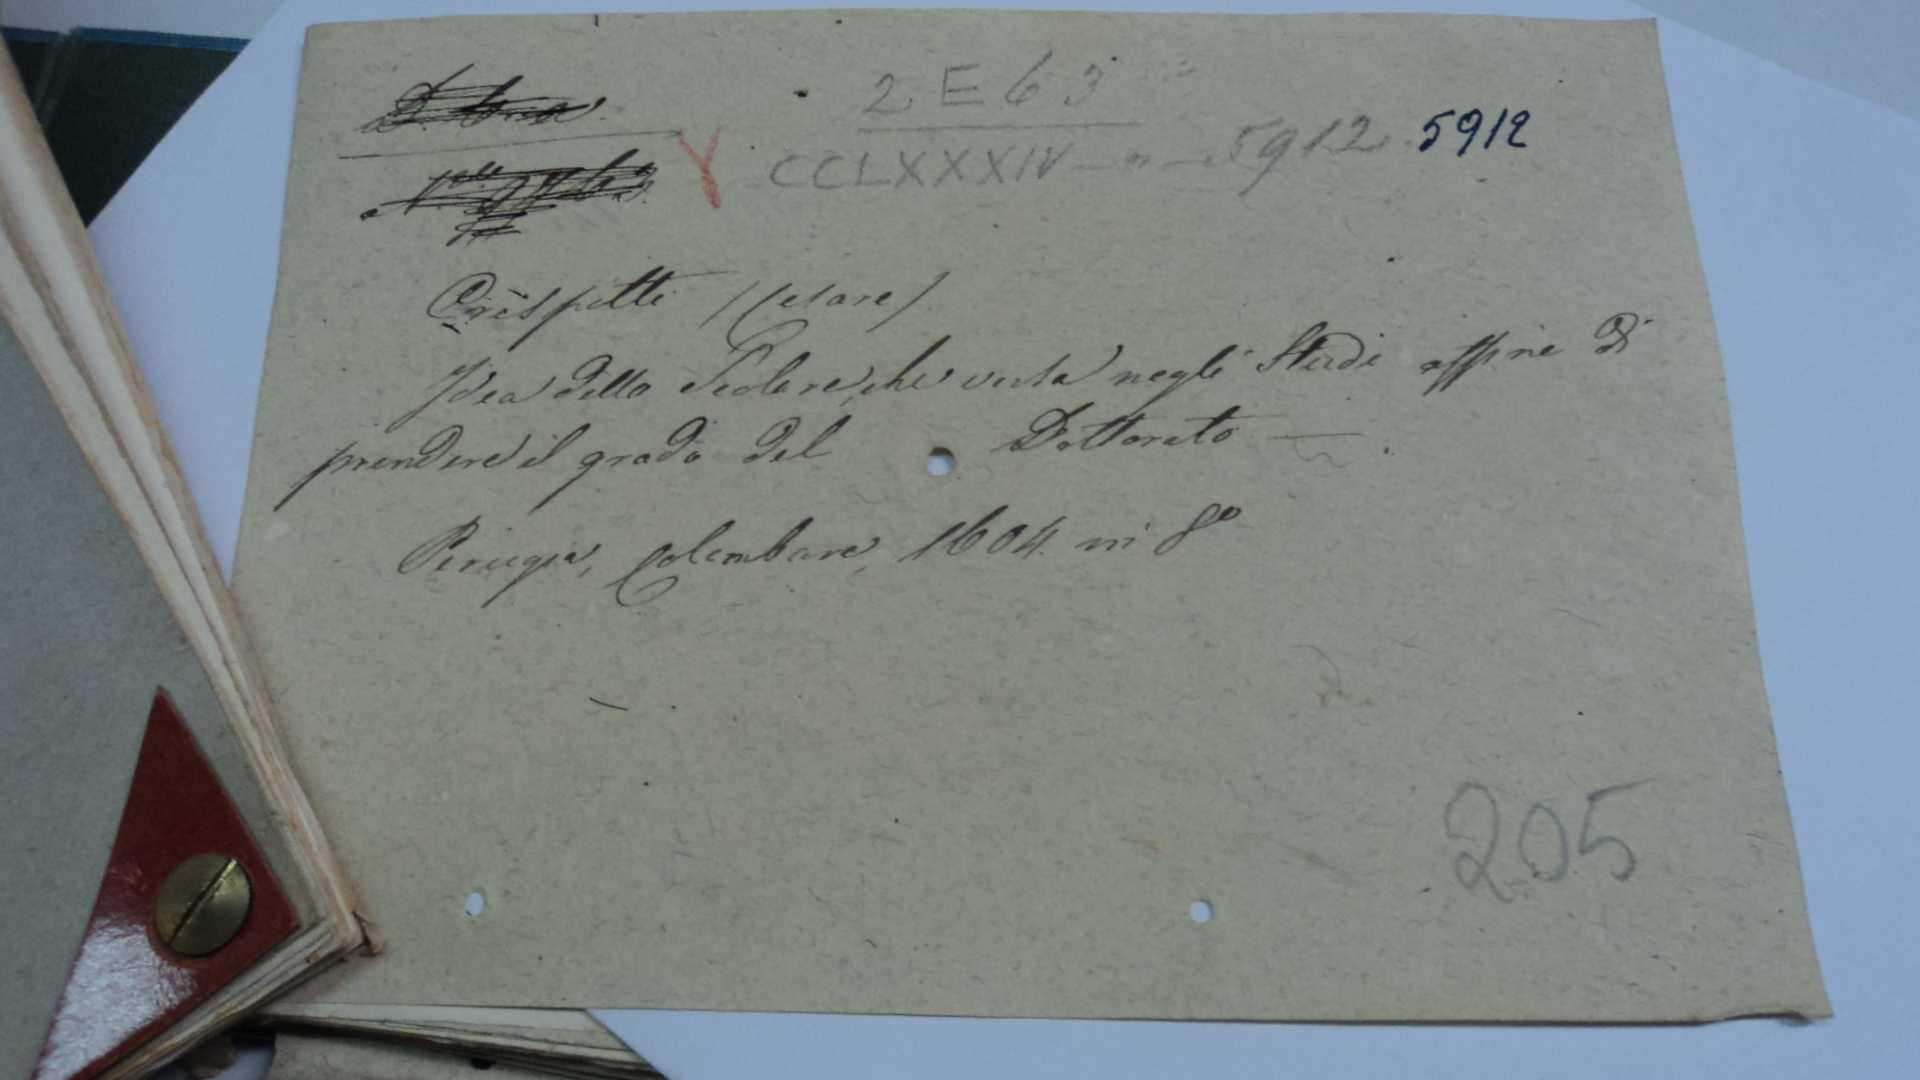 2 E 63
CCLXXXIV - n - 5912 5912
Crespitti (Cesare)
Idea dello Scolare, che versa negli Studi affine di
prendere il grado del Dottorato —.
Perugia, Colombara, 1604. in 8º
205